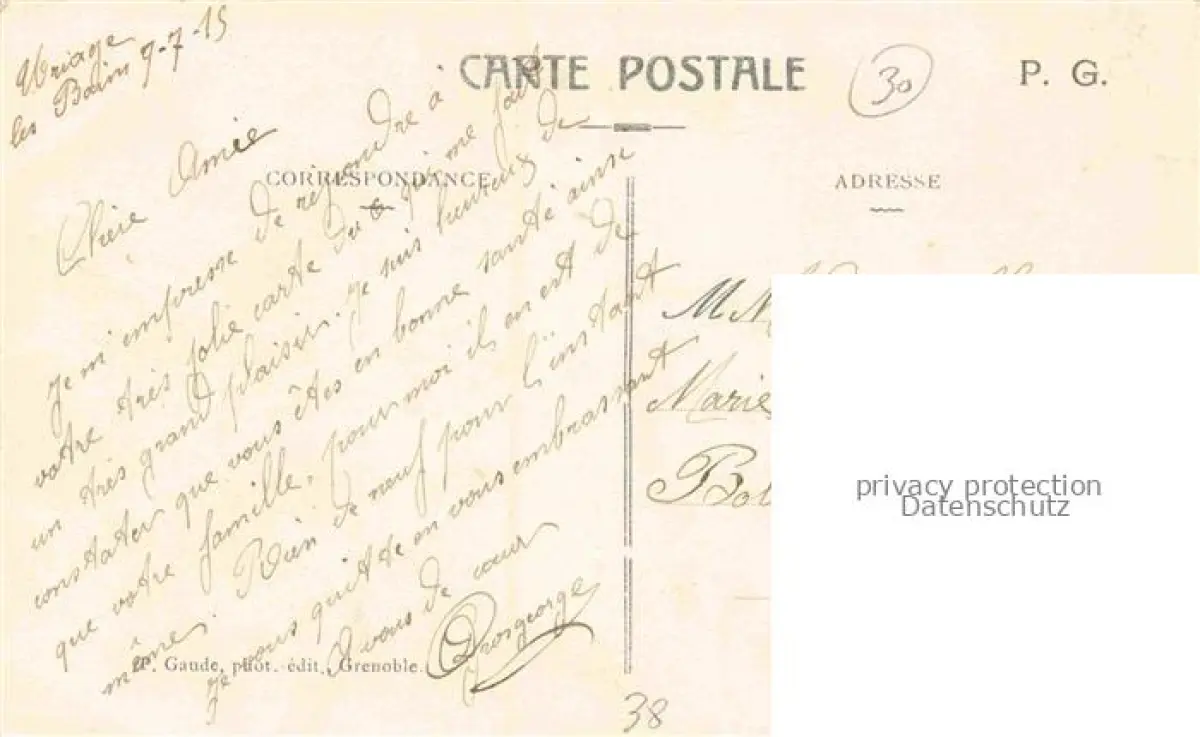 Uriage
les Bain 7-7-15
CARTE POSTALE
30
P. G.
CORRESPONDANCE
ADRESSE
Chère Amie
Je m'empresse de répondre à
votre très jolie carte du 6 qui me fait
un très grand plaisir. Je suis heureux de
constater que vous êtes en bonne santé ainsi
que votre famille, pour moi il en est de
même. Rien de neuf pour l'instant
Je vous quitte en vous embrassant
A vous de cœur
P. Gaude, phot. édit., Grenoble.
Marie
38
privacy protection
Datenschutz